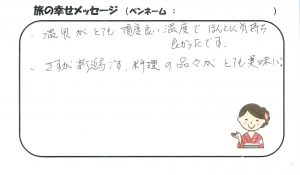 旅の幸せメッセージ (ペンネーム : )
・温泉が とても 頂度良い 温度で ほんとに気持ち
良かったです。
・さすが 新潟です、料理 の品々が とても美味い。